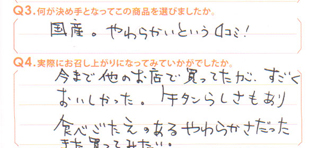 Q3.何が決め手となってこの商品を選びましたか。
国産。やわらかいという口コミ!
Q4.実際にお召し上がりになってみていかがでしたか。
今まで他のお店で買ってたが、すごく
おいしかった。牛タンらしさもあり
食べごたえのあるやわらかさだった
また買ってみたい。